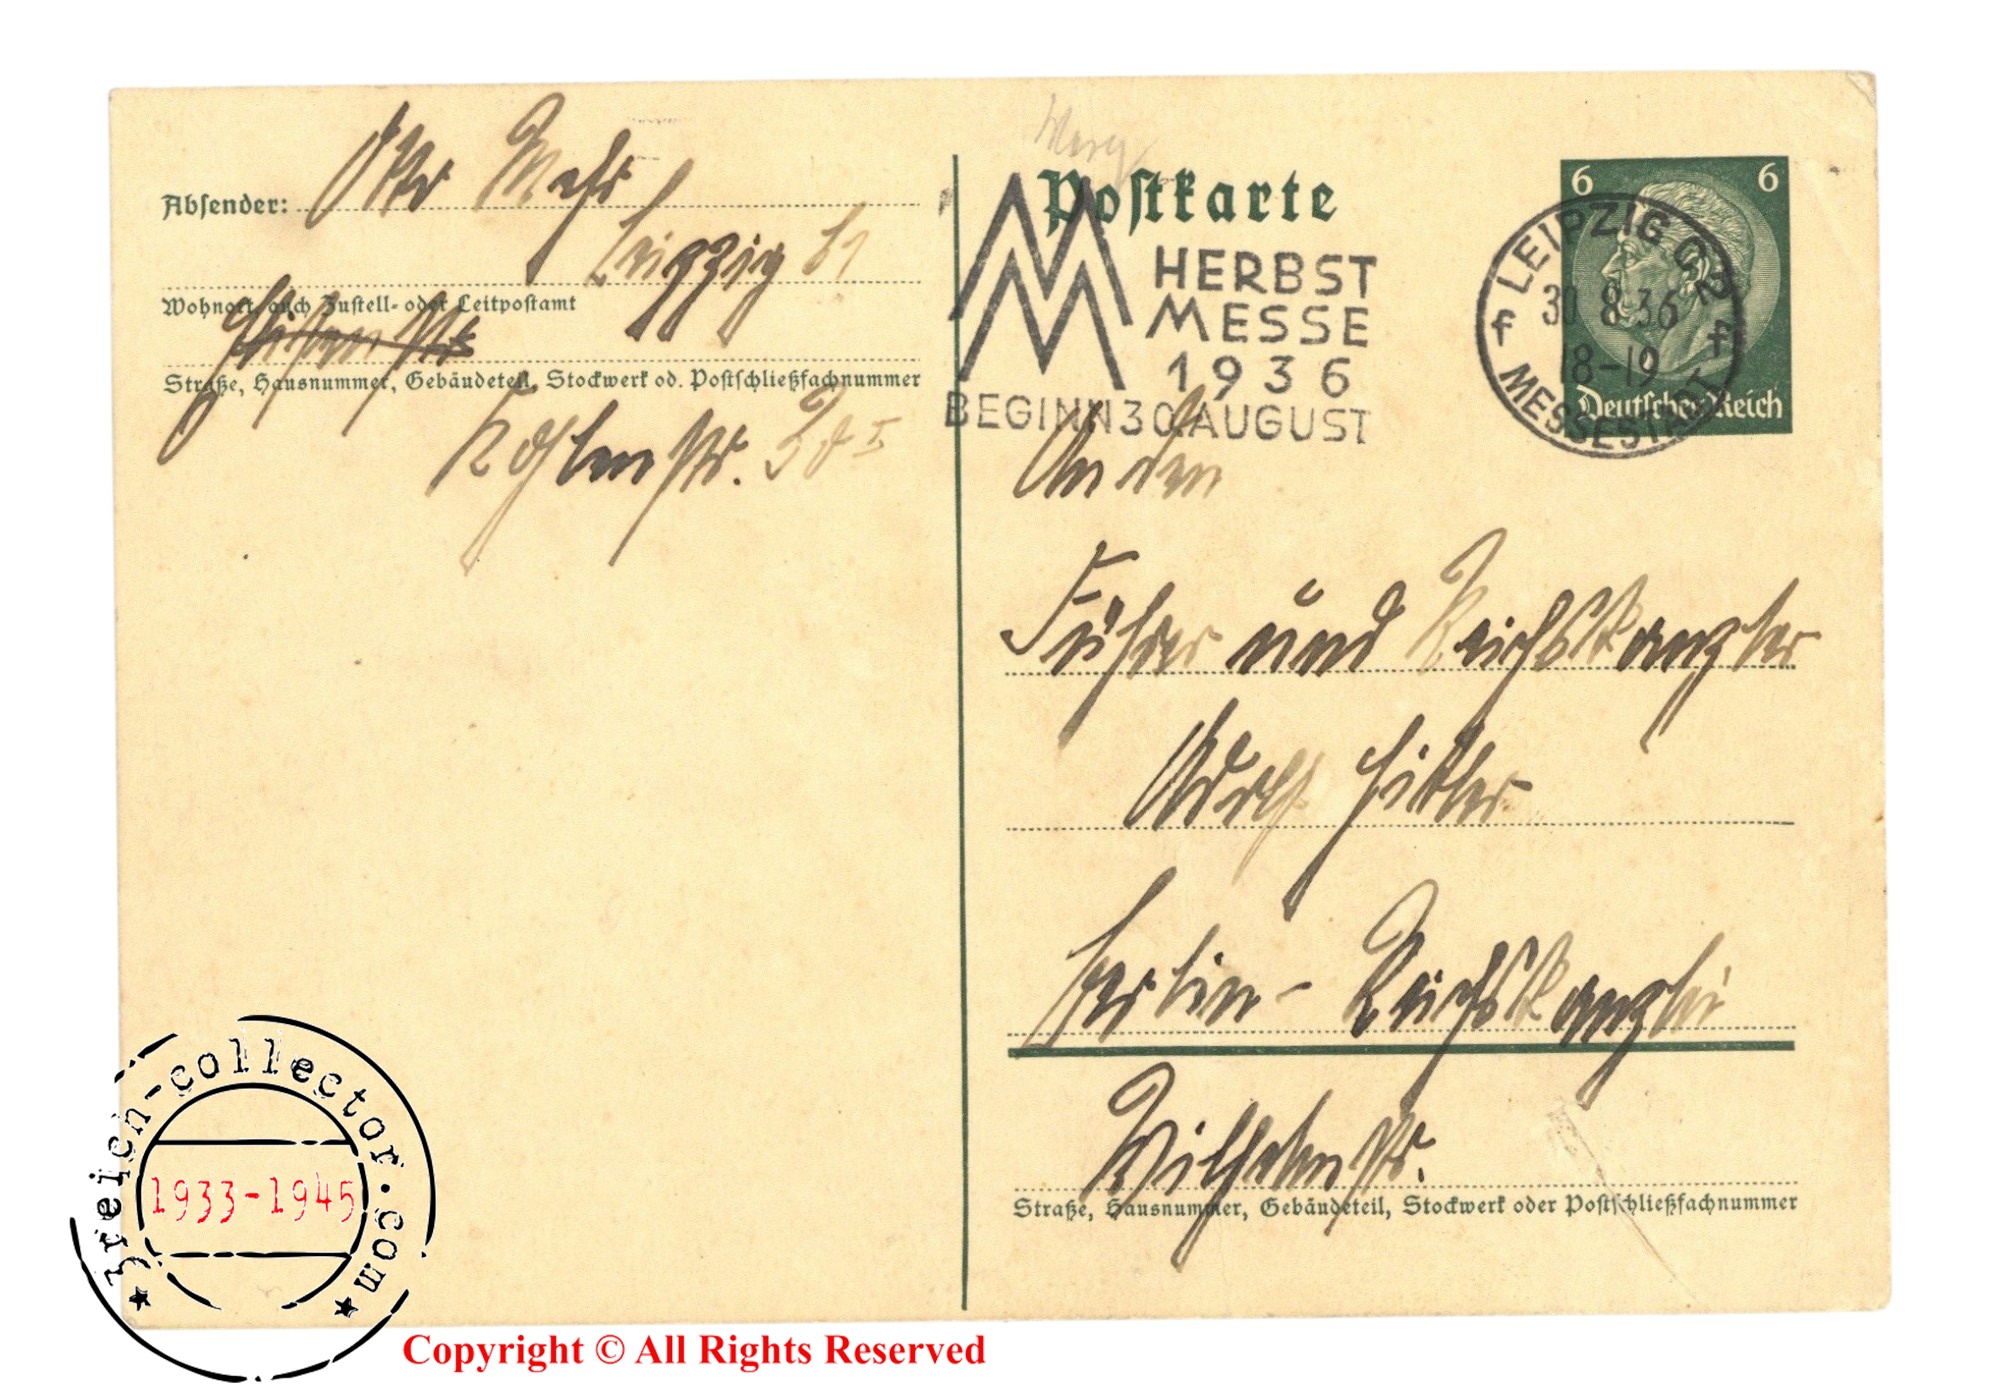 Absender: Otto
Leipzig
Wohnort, auch Zustell- oder Leitpostamt
Straße, Hausnummer, Gebäudeteil, Stockwerk od. Postschließfachnummer
Postkarte
MM
HERBST
MESSE
1936
BEGINN 30. AUGUST
6 6
Deutsches Reich
LEIPZIG C2
30.8.36
18-19
f f
MESSESTADT
An den
Führer und Reichskanzler
Adolf Hitler
Berlin - Reichskanzlei
Wilhelmstr.
Straße, Hausnummer, Gebäudeteil, Stockwerk oder Postschließfachnummer
3reich-collector.com
1933-1945
Copyright © All Rights Reserved